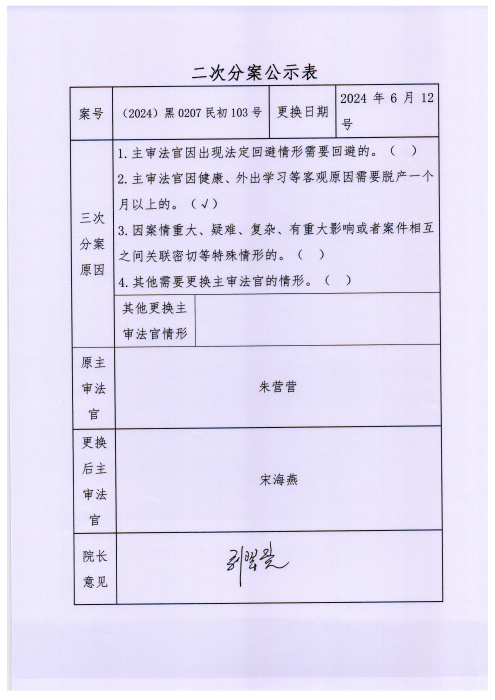 二次分案公示表
案号
（2024）黑0207民初103号
更换日期
2024年6月12
号
三次
分案
原因
1.主审法官因出现法定回避情形需要回避的。（ ）
2.主审法官因健康、外出学习等客观原因需要脱产一个
月以上的。（√）
3.因案情重大、疑难、复杂、有重大影响或者案件相互
之间关联密切等特殊情形的。（ ）
4.其他需要更换主审法官的情形。（ ）
其他更换主
审法官情形
原主
审法
官
朱营营
更换
后主
审法
官
宋海燕
院长
意见